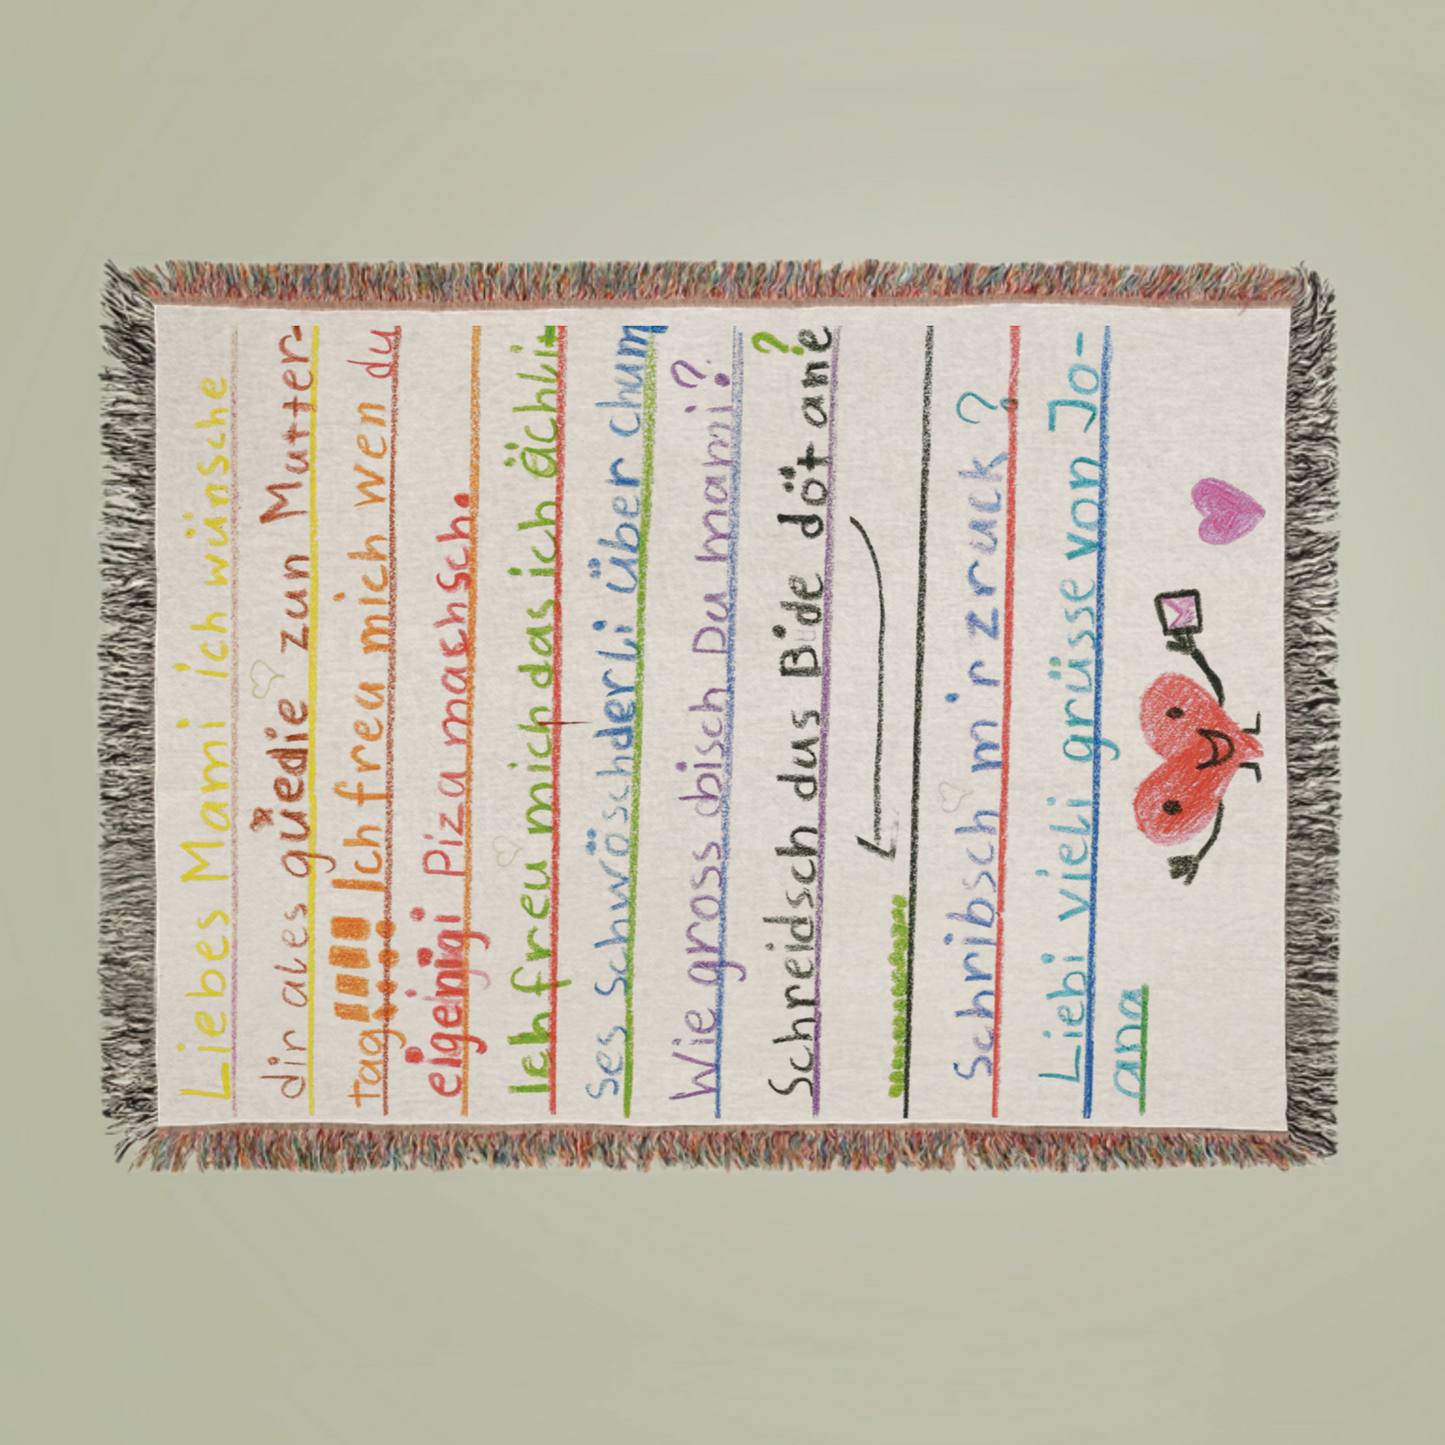 Liebes Mami ich wünsche
dir ales güedie zun Mutter-
tag!!!!! Ich freu mich wen du
eigeinigi Piza maschsch.
Ich freu mich das ich ächli
ses Schwöschderli über chum
Wie gross bisch Du mami?
Schreidsch das Bide döt ane?
Schribsch mir zruck?
Liebi vieli grüsse von Jo-
ana